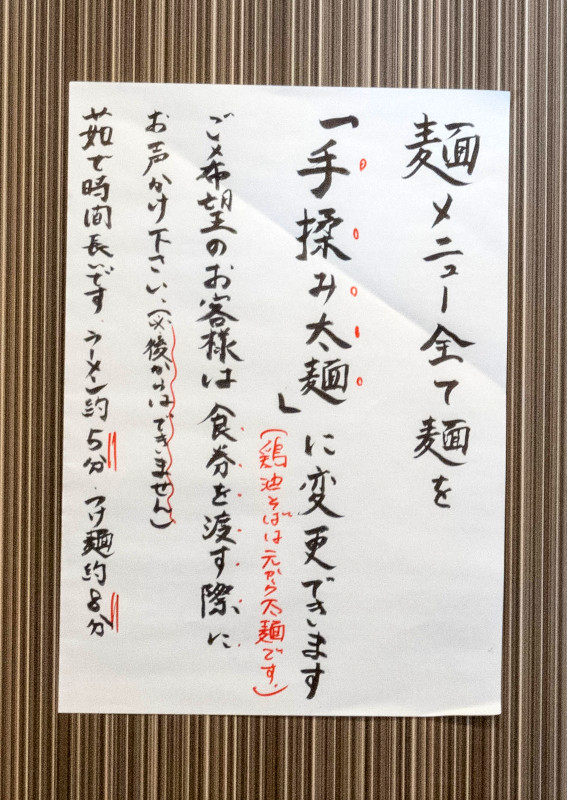 麺メニュー全て麺を
「手揉み太麺」に変更できます
(鶏油そばは元から太麺です。)
ご希望のお客様は食券を渡す際に
お声かけ下さい、(※後からはできません)
茹で時間長いです。ラーメン約5分・つけ麺約8分